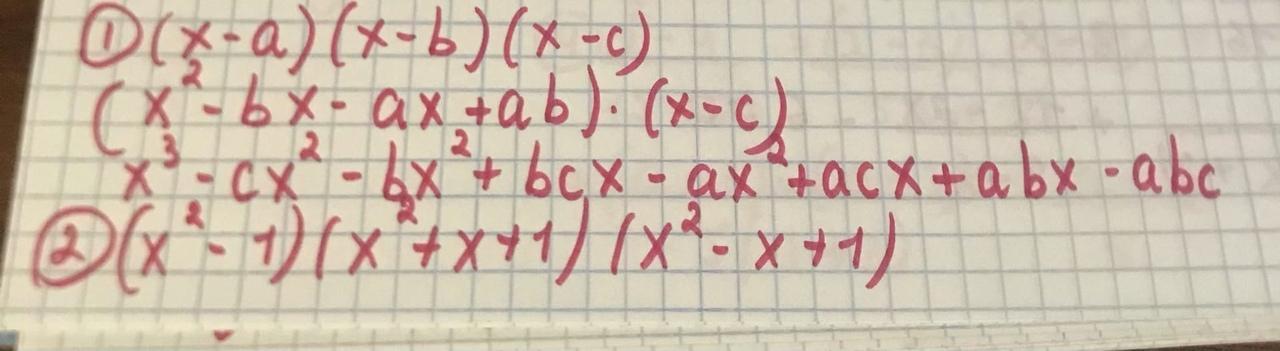 ① (x-a)(x-b)(x-c)
(x² - bx - ax + ab) · (x-c)
x³ - cx² - bx² + bcx - ax² + acx + abx - abc
② (x² - 1)(x² + x + 1)(x² - x + 1)